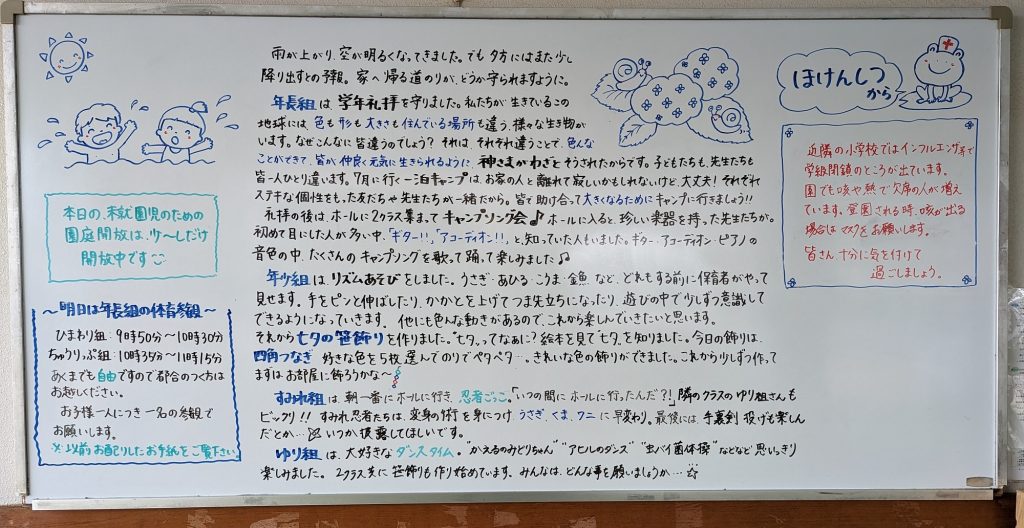 雨が上がり、空が明るくなってきました。でも夕方にはまた少し
降り出すとの予報。家へ帰る道のりが、どうか守られますように。
年長組は、学年礼拝を守りました。私たちが生きているこの
地球には、色も形も大きさも住んでいる場所も違う、様々な生き物が
います。なぜこんなに皆違うのでしょう？それは、それぞれ違うことで、色んな
ことができて、皆が仲良く元気に生きられるように、神さまがわざとそうされたからです。子どもたちも、先生たちも
皆一人ひとり違います。7月に行く一泊キャンプは、お家の人と離れて寂しいかもしれないけど、大丈夫！それぞれ
ステキな個性をもった友だちや先生たちが一緒だから。皆で助け合って大きくなるためにキャンプに行きましょう!!
礼拝の後は、ホールに2クラス集まってキャンプソング会♪ホールに入ると、珍しい楽器を持った先生たちが。
初めて目にした人が多い中、「ギター!!」「アコーディオン!!」と、知っていた人もいました。ギター・アコーディオン・ピアノの
音色の中、たくさんのキャンプソングを歌って踊って楽しみました♫
年少組は、リズムあそびをしました。うさぎ・あひる・こうま・金魚など、どれもする前に保育者がやって
見せます。手をピンと伸ばしたり、かかとを上げてつま先立ちになったり、遊びの中で少しずつ意識して
できるようになっていきます。他にも色んな動きがあるので、これから楽しんでいきたいと思います。
それから七夕の笹飾りを作りました。"七夕"ってなあに？絵本を見て七夕を知りました。今日の飾りは、
四角つなぎ 好きな色を5枚選んでのりでペタペタ…。きれいな色の飾りができました。これから少しずつ作って
まずはお部屋に飾ろうかな〜
すみれ組は、朝一番にホールに行き、忍者ごっこ。「いつの間にホールに行ったんだ?!」隣のクラスのゆり組さんも
ビックリ!! すみれ忍者たちは、変身の術を身につけ、うさぎ、くま、ワニに早変わり。最後には、手裏剣投げも楽しん
だとか… いつか披露してほしいです。
ゆり組は、大好きなダンスタイム。"かえるのみどりちゃん""アヒルのダンス""虫バイ菌体操"などなど思いっきり
楽しみました。2クラス共に笹飾りも作り始めています。みんなは、どんな事を願いましょうか…☆
本日の、未就園児のための
園庭開放は、少〜しだけ
開放中です
〜明日は年長組の体育参観〜
ひまわり組：9時50分〜10時30分
ちゅうりっぷ組：10時35分〜11時15分
あくまでも自由ですので都合のつく方は
お越しください。
お子様一人につき一名の参観で
お願いします。
※以前お配りしたお手紙をご覧下さい
ほけんしつ
から
近隣の小学校ではインフルエンザ等で
学級閉鎖のところが出ています。
園でも咳や熱で欠席の人が増え
ています。登園される時、咳が出る
場合はマスクをお願いします。
皆さん、十分に気を付けて
過ごしましょう。